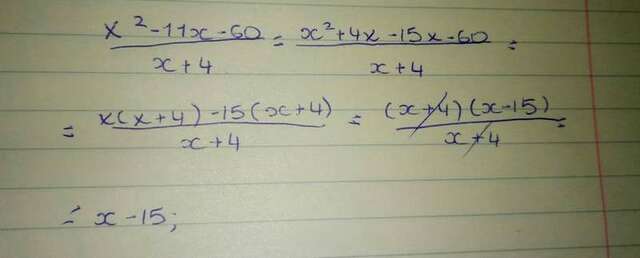 x² - 11x - 60 / x + 4 = x² + 4x - 15x - 60 / x + 4 =
= x(x + 4) - 15(x + 4) / x + 4 = (x + 4)(x - 15) / x + 4 =
= x - 15;